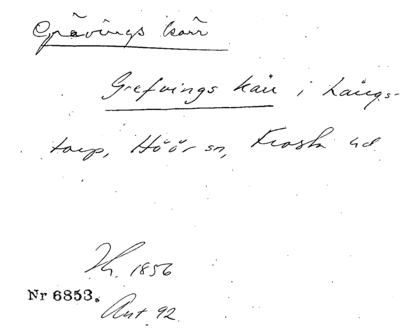 Grävings kärr
Grefvings kärr i Långs-
torp, Höör sn, Frosta hd
Th. 1856
Nr 6853.
Ant 92.